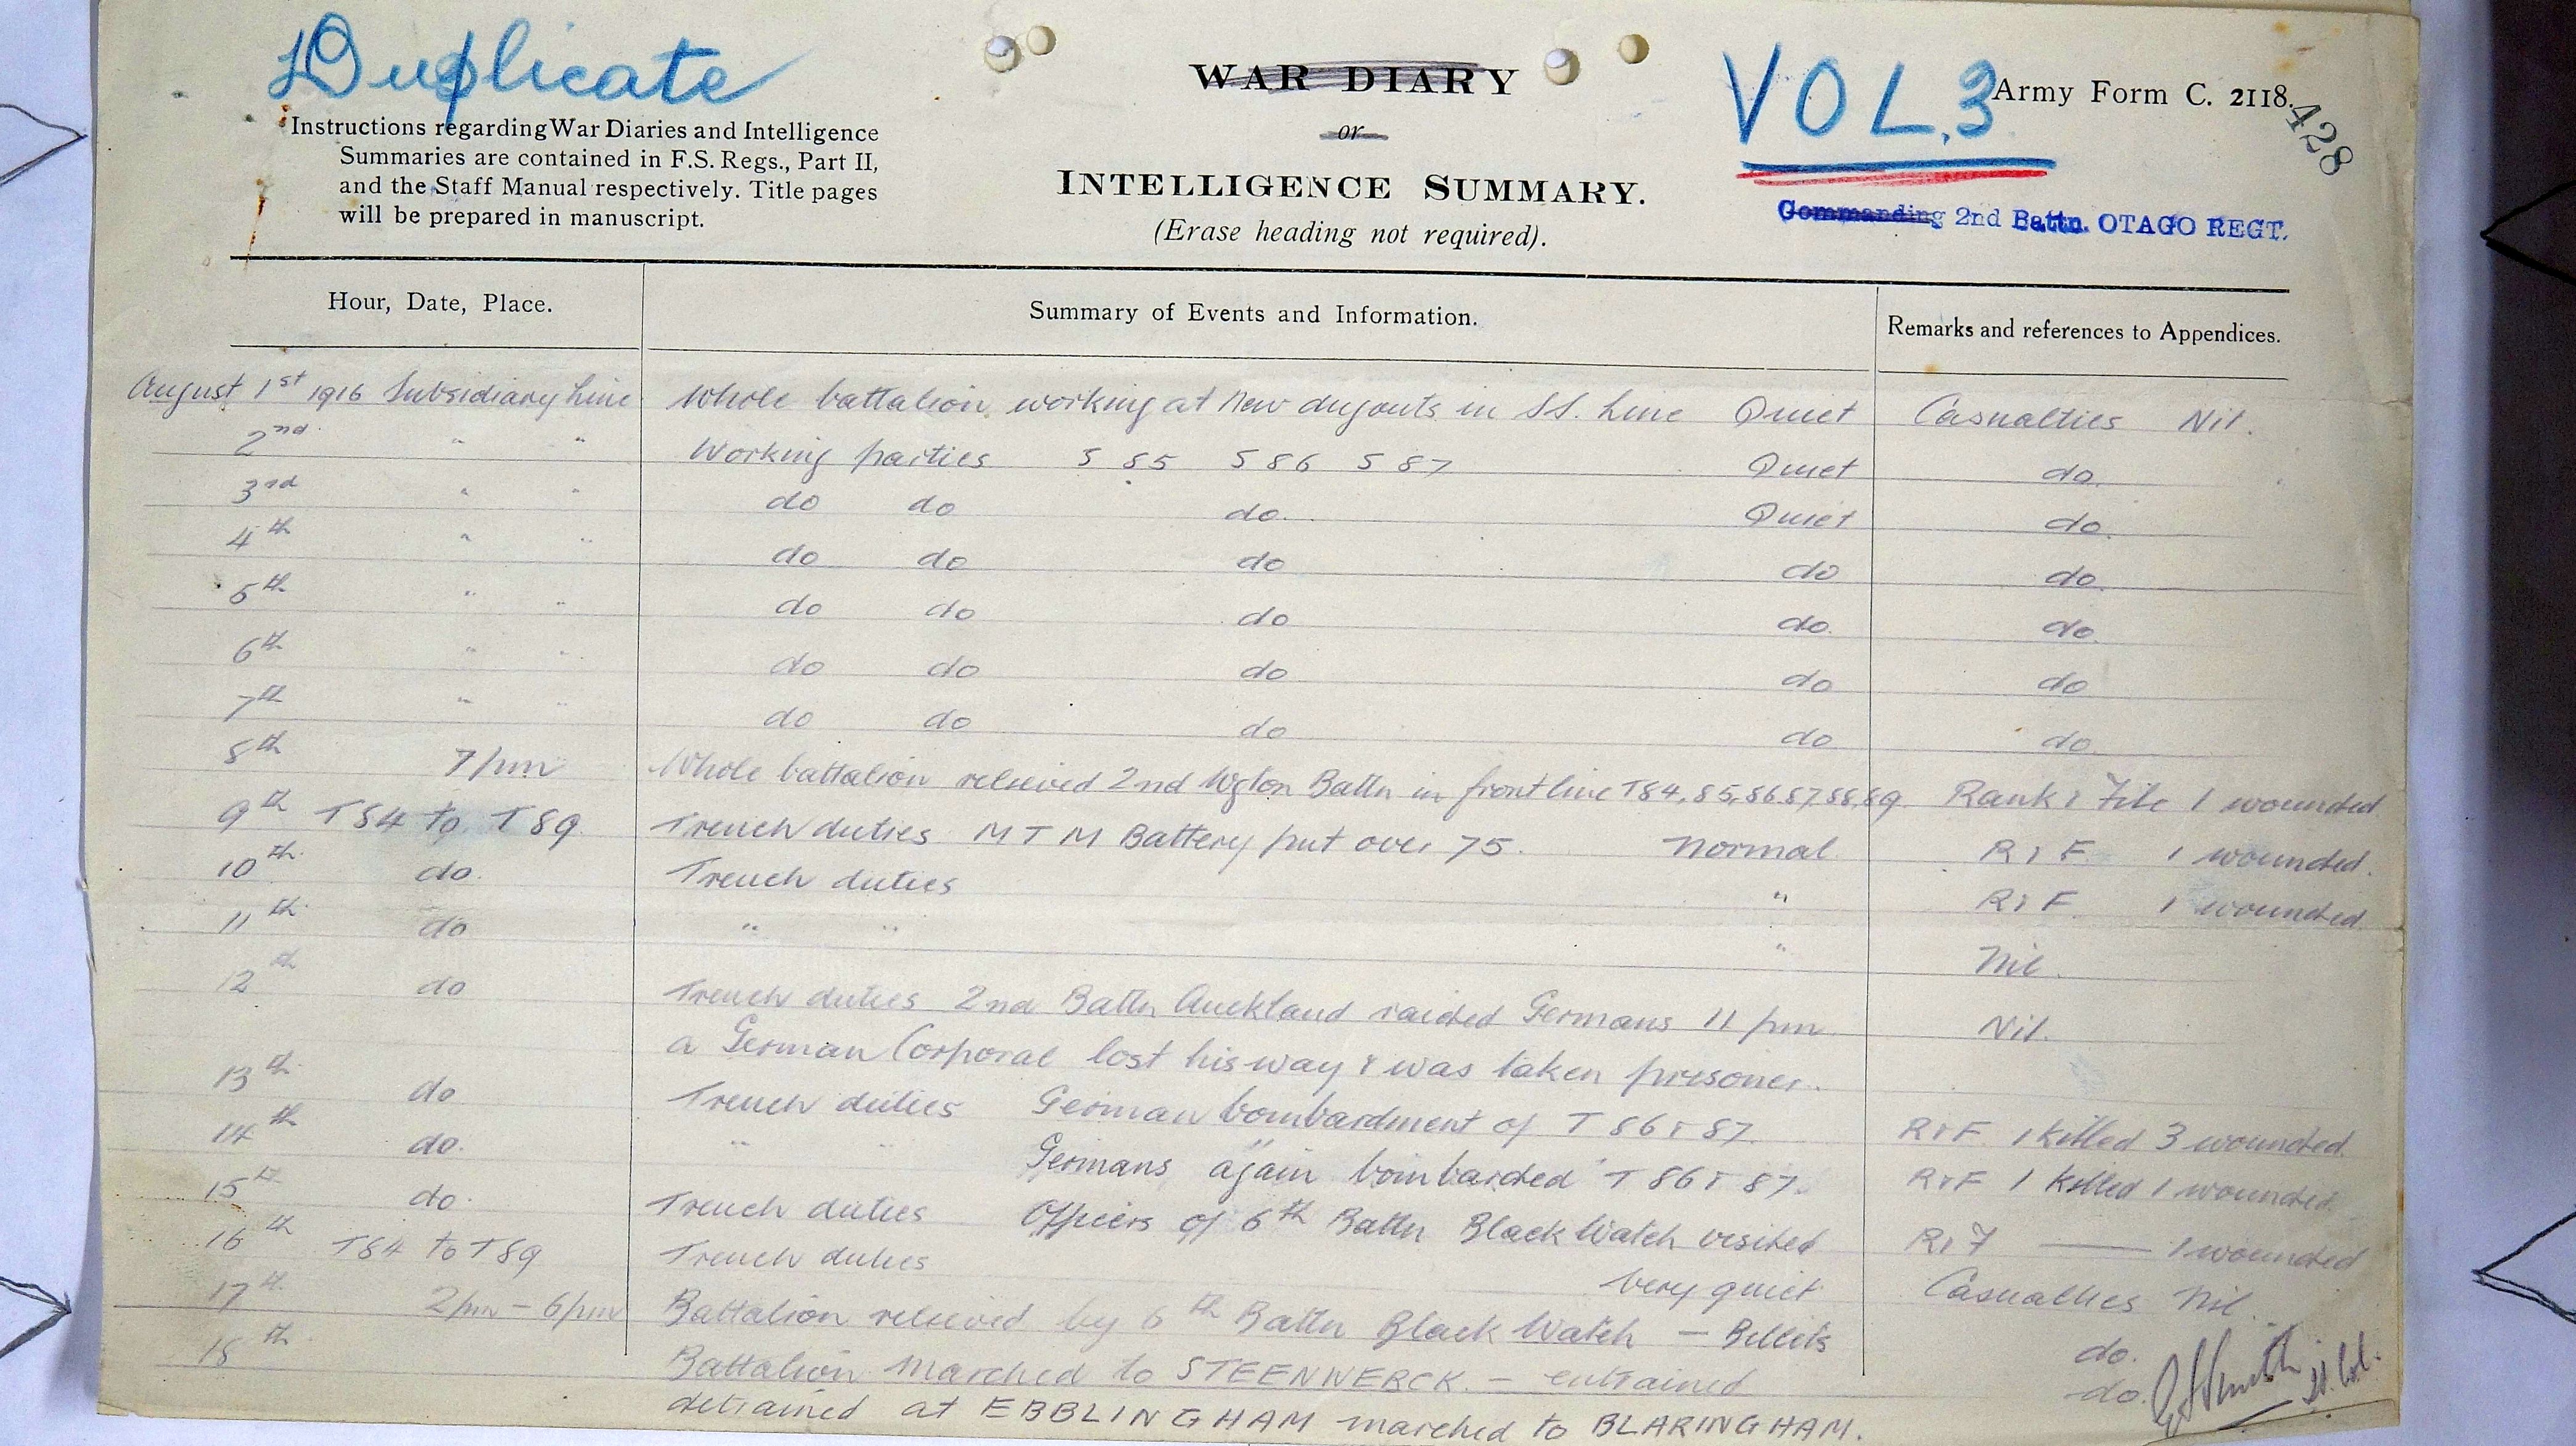 Duplicate
WAR DIARY
or
INTELLIGENCE SUMMARY.
(Erase heading not required).
VOL. 3
Army Form C. 2118.
428
Instructions regarding War Diaries and Intelligence
Summaries are contained in F.S. Regs., Part II,
and the Staff Manual respectively. Title pages
will be prepared in manuscript.
Commanding 2nd Battn. OTAGO REGT.
Hour, Date, Place. Summary of Events and Information. Remarks and references to Appendices.
August 1st 1916 Subsidiary Line Whole battalion working at New dugouts in SS. Line Quiet Casualties Nil.
2nd " " Working parties S 85 S 86 S 87 Quiet do.
3rd " " do do do. Quiet do.
4th " " do do do do do.
5th " " do do do do. do.
6th " " do do do do do
7th " " do do do do do.
8th 7 pm Whole battalion relieved 2nd Wgton Battn in front line T84, 85, 86, 87, 88, 89 Rank & File 1 wounded.
9th T84 to T89. Trench duties M T M Battery put over 75. Normal R & F. 1 wounded.
10th do. Trench duties " R & F. 1 wounded
11th do " " " Nil.
12th do Trench duties 2nd Battn Auckland raided Germans 11 pm Nil.
a German Corporal lost his way & was taken prisoner.
13th do Trench duties German bombardment of T 86 & 87. R & F 1 killed 3 wounded.
14th do. " " Germans again bombarded T 86 & 87. R & F 1 killed 1 wounded.
15th do. Trench duties Officers of 6th Battn Black Watch visited R & F — 1 wounded
16th T84 to T89 Trench duties Very quiet Casualties Nil.
17th 2pm – 6pm Battalion relieved by 6th Battn Black Watch – Billets do.
18th Battalion marched to STEENWERCK. – entrained do.
detrained at EBBLINGHAM marched to BLARINGHAM.
Smith Lt. Col.